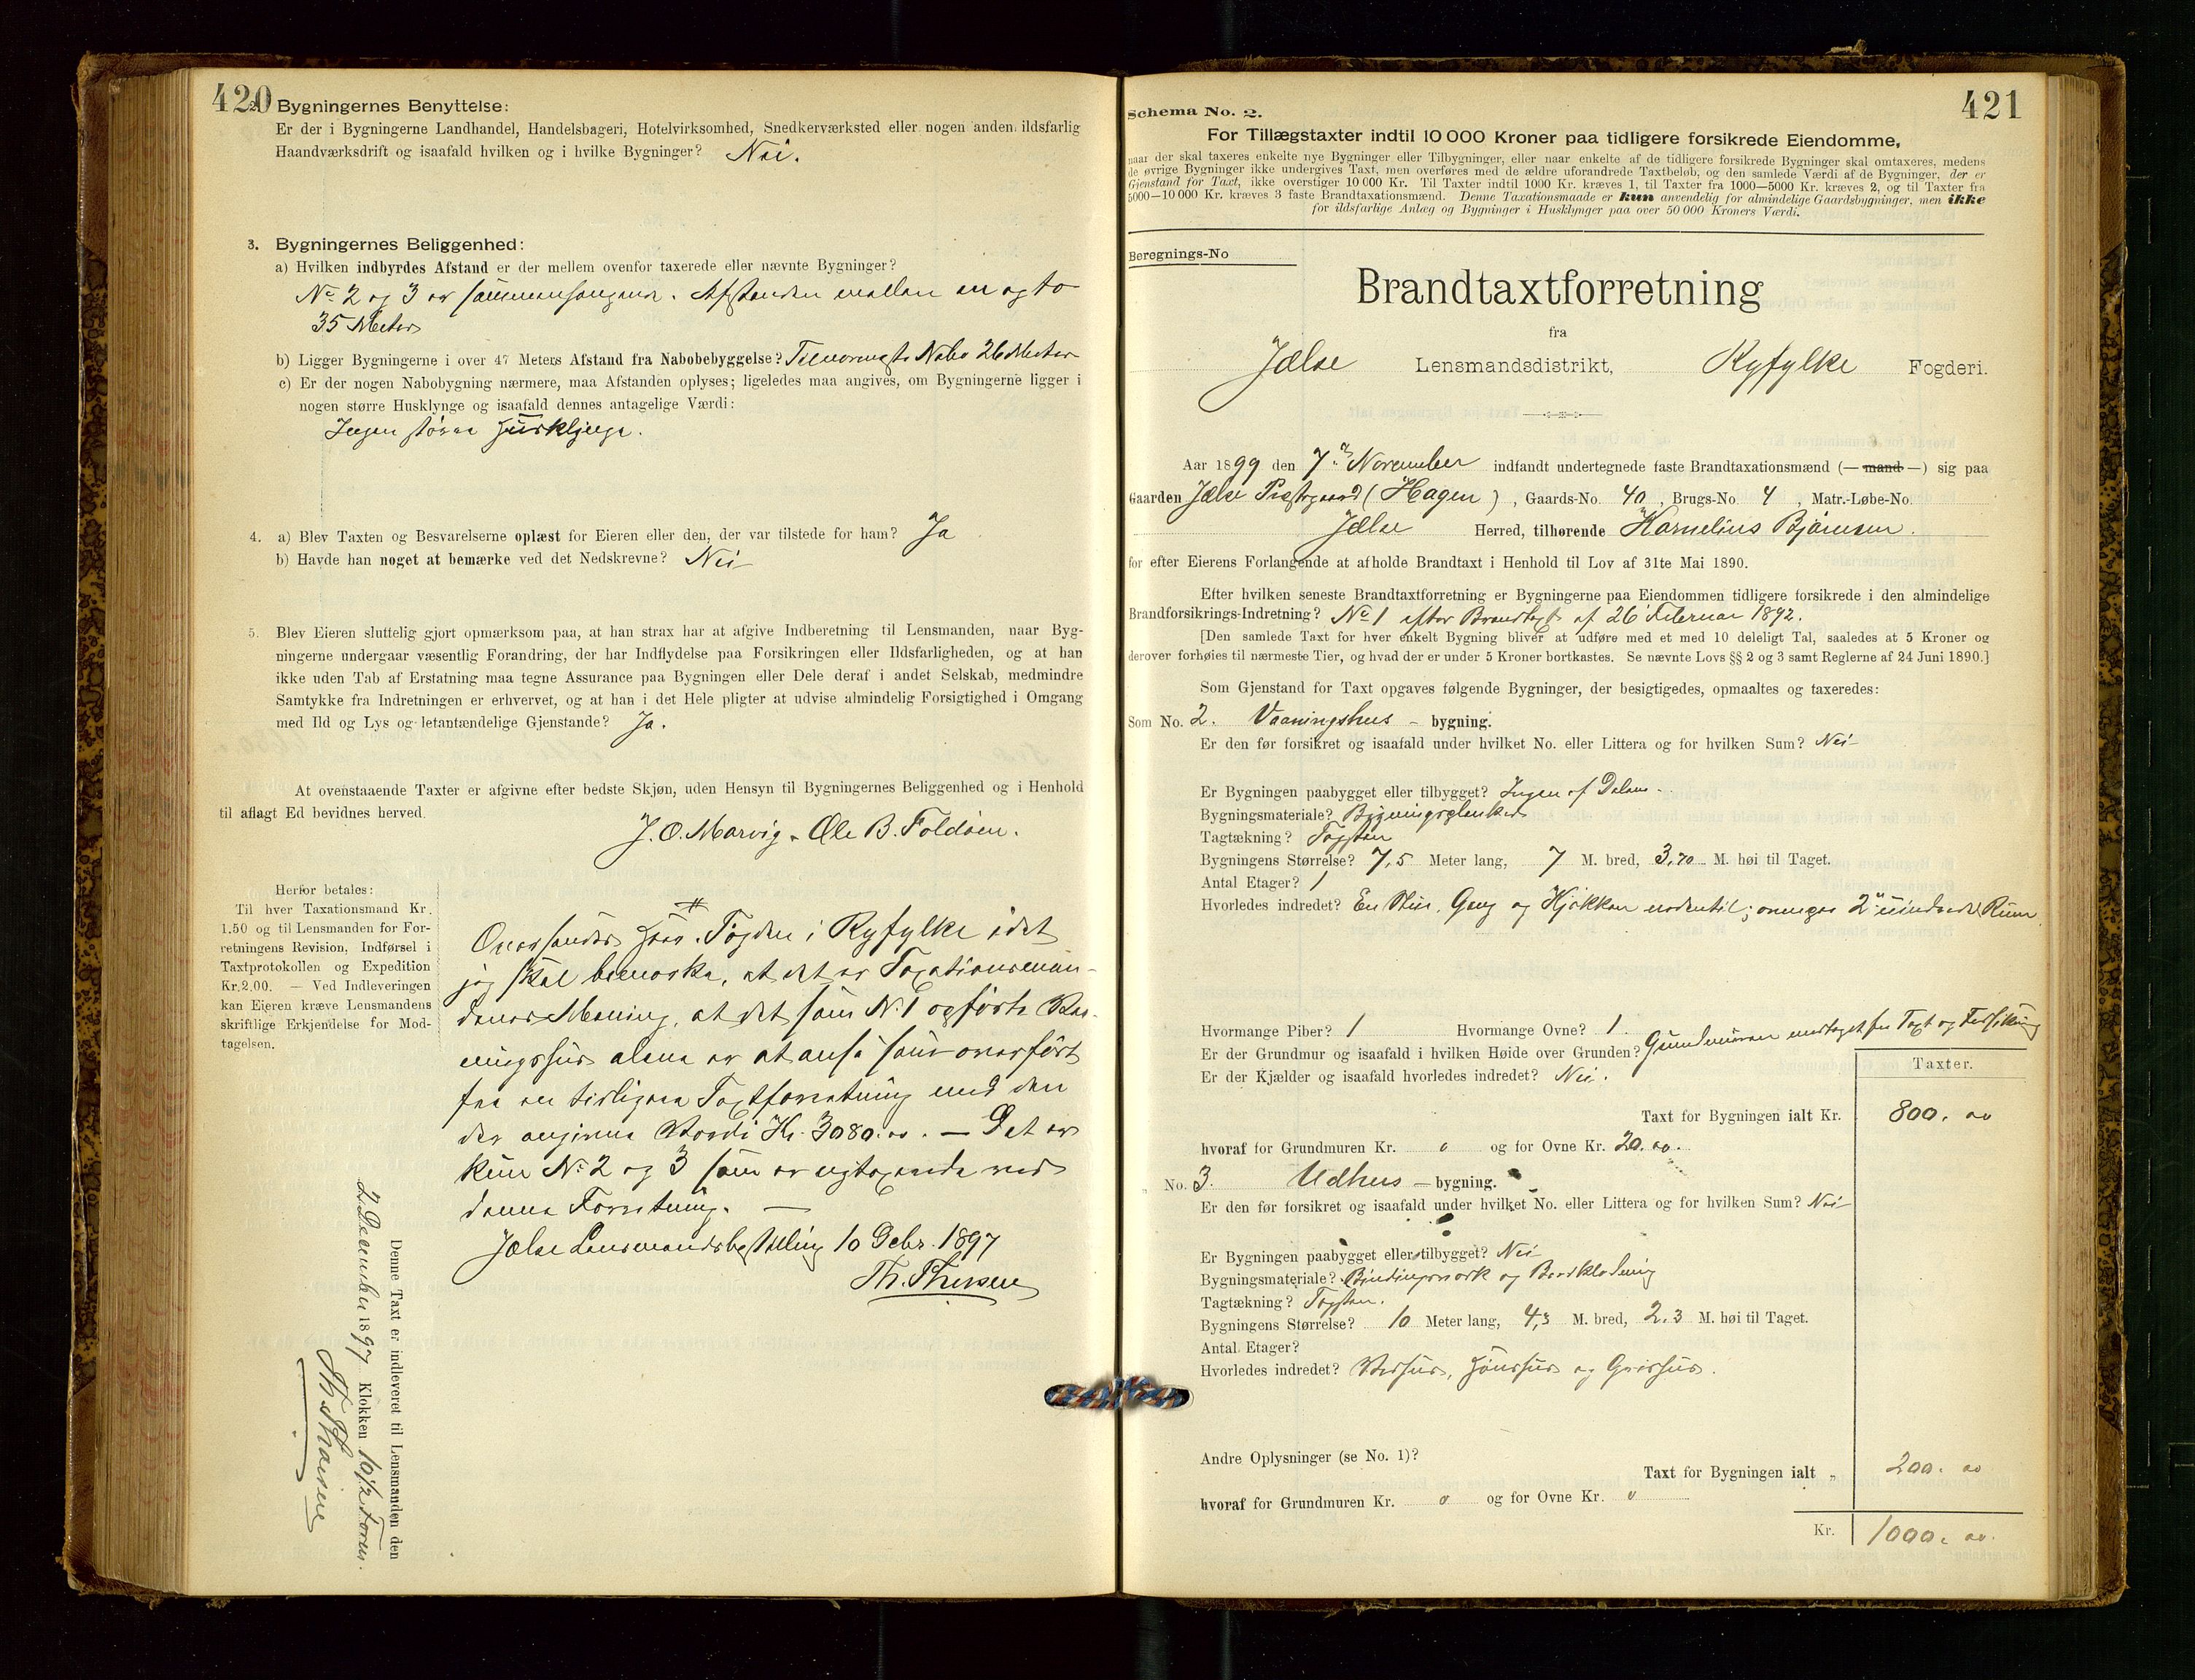 420
2. Bygningernes Benyttelse:
Er der i Bygningerne Landhandel, Handelsbageri, Hotelvirksomhed, Snedkerværksted eller nogen anden ildsfarlig
Haandværksdrift og isaafald hvilken og i hvilke Bygninger? Nei.
3. Bygningernes Beliggenhed:
a) Hvilken indbyrdes Afstand er der mellem ovenfor taxerede eller nævnte Bygninger?
No 2 og 3 er sammenhængende. Afstanden mellem en og to
35 Meter
b) Ligger Bygningerne i over 47 Meters Afstand fra Nabobebyggelse? Til nærmeste Nabo 26 Meter
c) Er der nogen Nabobygning nærmere, maa Afstanden oplyses; ligeledes maa angives, om Bygningerne ligger i
nogen større Husklynge og isaafald dennes antagelige Værdi:
Ingen større Husklynge.
4. a) Blev Taxten og Besvarelserne oplæst for Eieren eller den, der var tilstede for ham? Ja
b) Havde han noget at bemærke ved det Nedskrevne? Nei
5. Blev Eieren sluttelig gjort opmærksom paa, at han strax har at afgive Indberetning til Lensmanden, naar Byg-
ningerne undergaar væsentlig Forandring, der har Indflydelse paa Forsikringen eller Ildsfarligheden, og at han
ikke uden Tab af Erstatning maa tegne Assurance paa Bygningen eller Dele deraf i andet Selskab, medmindre
Samtykke fra Indretningen er erhvervet, og at han i det Hele pligter at udvise almindelig Forsigtighed i Omgang
med Ild og Lys og letantændelige Gjenstande? Ja.
At ovenstaaende Taxter er afgivne efter bedste Skjøn, uden Hensyn til Bygningernes Beliggenhed og i Henhold
til aflagt Ed bevidnes herved.
J. O. Marvig. Ole B. Foldøen.
Herfor betales:
Til hver Taxationsmand Kr.
1.50 og til Lensmanden for For-
retningens Revision, Indførsel i
Taxtprotokollen og Expedition
Kr. 2.00. — Ved Indleveringen
kan Eieren kræve Lensmandens
skriftlige Erkjendelse for Mod-
tagelsen.
Oversendes Hrr. Fogden i Ryfylke idet
jeg skal bemærke, at det er Taxationsmæn-
denes Mening, at det som No 1 opførte Vaa-
ningshus alene er at anse som overført
fra en tidligere Taxtforretning med den
der angivne Værdi Kr. 3080.00. — Det er
kun No 2 og 3 som er nytaxerede ved
denne Forretning. —
Jælse Lensmandsbestilling 10 Debr. 1897
Th. Thorsen
Denne Taxt er indleveret til Lensmanden den
2 December 1897 Klokken 10 1/2 Form.
Th. Thorsen
421
Schema No. 2.
For Tillægstaxter indtil 10 000 Kroner paa tidligere forsikrede Eiendomme,
naar der skal taxeres enkelte nye Bygninger eller Tilbygninger, eller naar enkelte af de tidligere forsikrede Bygninger skal omtaxeres, medens
de øvrige Bygninger ikke undergives Taxt, men overføres med de ældre uforandrede Taxtbeløb, og den samlede Værdi af de Bygninger, der er
Gjenstand for Taxt, ikke overstiger 10 000 Kr. Til Taxter indtil 1000 Kr. kræves 1, til Taxter fra 1000—5000 Kr. kræves 2, og til Taxter fra
5000—10 000 Kr. kræves 3 faste Brandtaxationsmænd. Denne Taxationsmaade er kun anvendelig for almindelige Gaardsbygninger, men ikke
for ildsfarlige Anlæg og Bygninger i Husklynger paa over 50 000 Kroners Værdi.
Beregnings-No
Brandtaxtforretning
fra
Jælse Lensmandsdistrikt, Ryfylke Fogderi.
Aar 1899 den 7de November indfandt undertegnede faste Brandtaxationsmænd (— mand —) sig paa
Gaarden Jælse Prestgaard (Hagen), Gaards-No. 40, Brugs-No. 4, Matr.-Løbe-No.
Jælse Herred, tilhørende Kornelius Bjørnsen.
for efter Eierens Forlangende at afholde Brandtaxt i Henhold til Lov af 31te Mai 1890.
Efter hvilken seneste Brandtaxtforretning er Bygningerne paa Eiendommen tidligere forsikrede i den almindelige
Brandforsikrings-Indretning? No 1 efter Brandtaxt af 26 Februar 1892.
[Den samlede Taxt for hver enkelt Bygning bliver at udføre med et med 10 deleligt Tal, saaledes at 5 Kroner og
derover forhøies til nærmeste Tier, og hvad der er under 5 Kroner bortkastes. Se nævnte Lovs §§ 2 og 3 samt Reglerne af 24 Juni 1890.]
Som Gjenstand for Taxt opgaves følgende Bygninger, der besigtigedes, opmaaltes og taxeredes:
Som No. 2. Vaaningshus - bygning.
Er den før forsikret og isaafald under hvilket No. eller Littera og for hvilken Sum? Nei
Er Bygningen paabygget eller tilbygget? Ingen af Delene.
Bygningsmateriale? Bygningsplanker
Tagtækning? Tagsten
Bygningens Størrelse? 7,5 Meter lang, 7 M. bred, 3,70 M. høi til Taget.
Antal Etager? 1
Hvorledes indredet? En Stue, Gang og Kjøkken nedentil; ovenpaa 2 uindredede Rum
Hvormange Piber? 1 Hvormange Ovne? 1.
Er der Grundmur og isaafald i hvilken Høide over Grunden? Grundmuren undtaget fra Taxt og Forsikring
Er der Kjælder og isaafald hvorledes indredet? Nei.
Taxter.
Taxt for Bygningen ialt Kr. 800. 00
hvoraf for Grundmuren Kr. 0 og for Ovne Kr. 20.00.
„ No. 3. Udhus — bygning.
Er den før forsikret og isaafald under hvilket No. eller Littera og for hvilken Sum? Nei
Er Bygningen paabygget eller tilbygget? Nei
Bygningsmateriale? Bindingsverk og Bordklædning
Tagtækning? Tagsten.
Bygningens Størrelse? 10 Meter lang, 4,3 M. bred, 2.3 M. høi til Taget.
Antal Etager?
Hvorledes indredet? Vedhus, Hønsehus og Grisehus.
Andre Oplysninger (se No. 1)?
Taxt for Bygningen ialt „ 200. 00
hvoraf for Grundmuren Kr. 0 og for Ovne Kr. 0
Kr. 1000. 00.